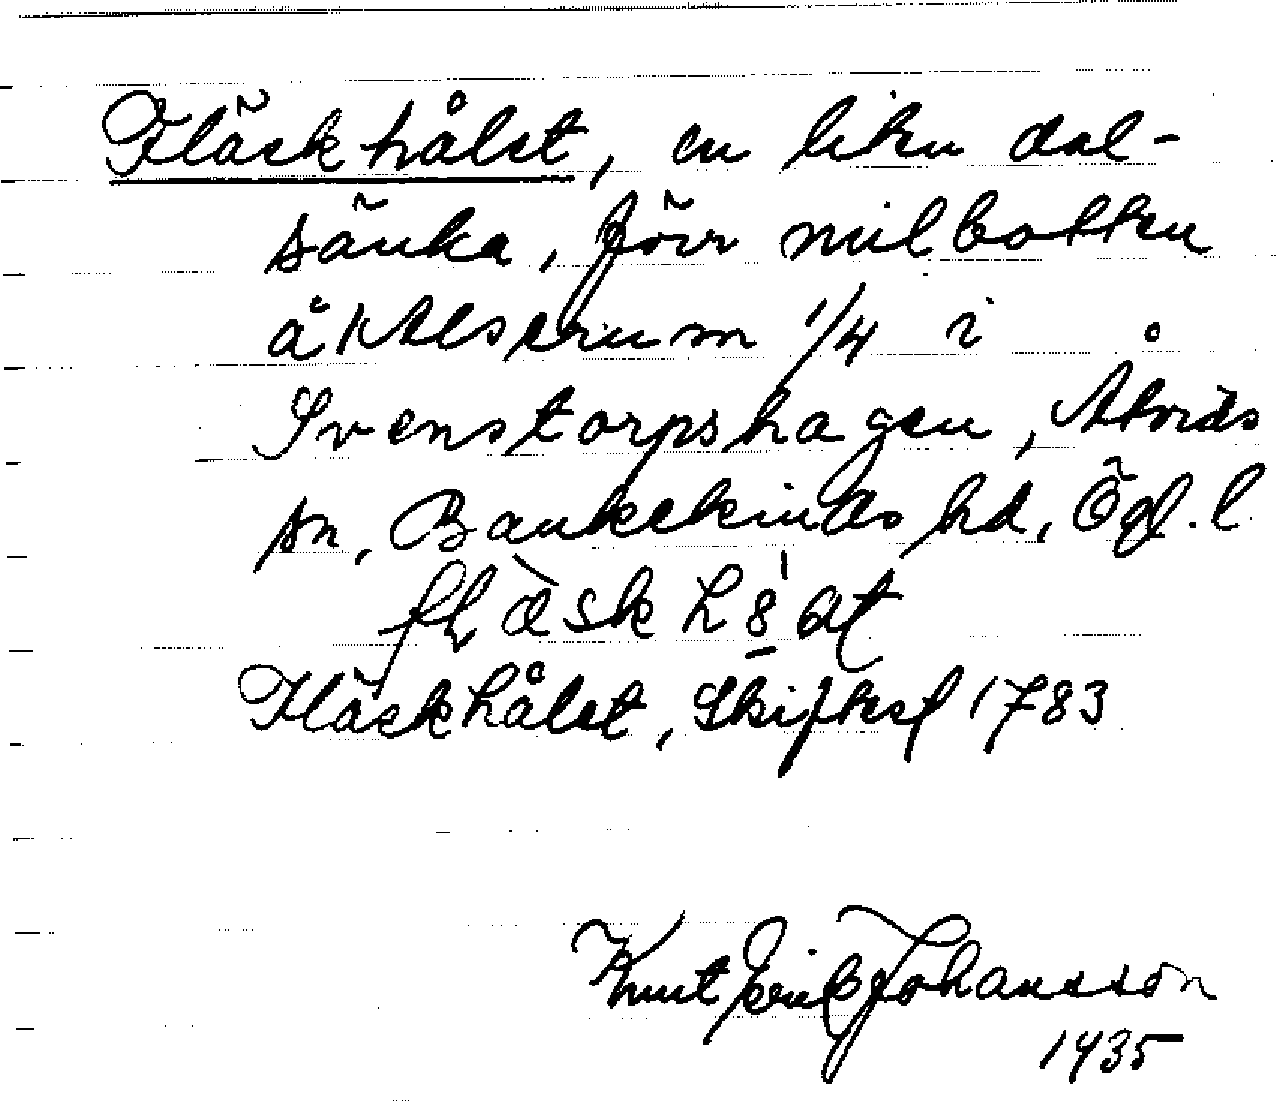 Fläskhålet, en liten dal-
sänka, förr milbotten
åkttestrum 1/4 i
Svenstorpshagen, Åtvids
sn, Bankekinds hd, Ögl. l.
flæskhat
Fläskhålet, Skifteskf 1783
Knut Erik Johansson
1935